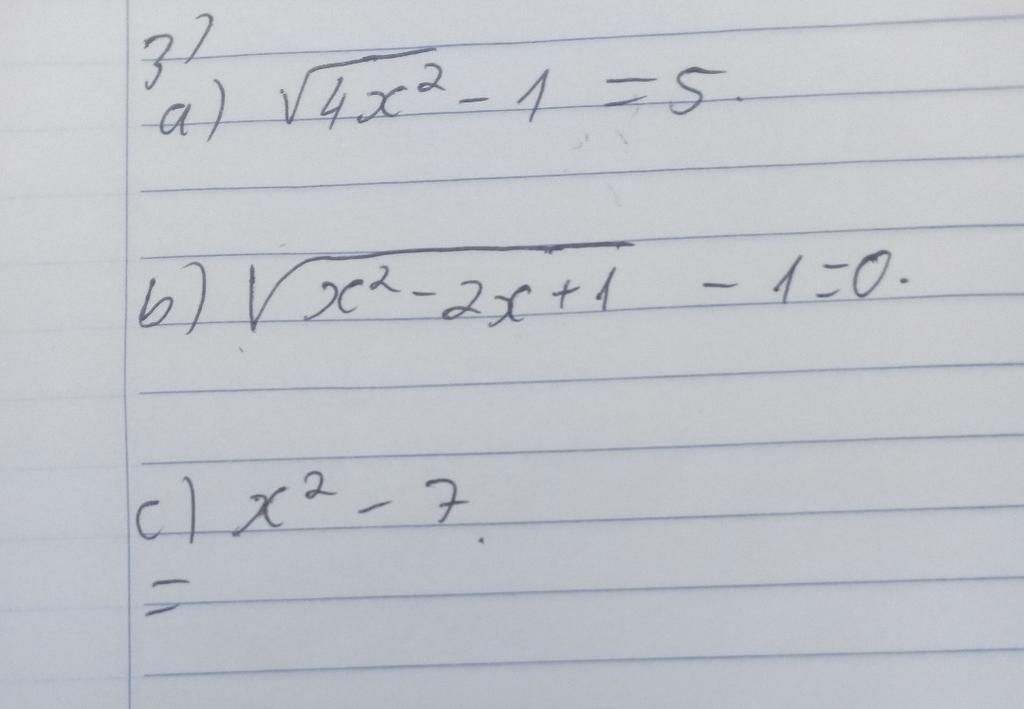 3)
a) √4x² - 1 = 5.
b) √x² - 2x + 1 - 1 = 0.
c) x² - 7.
=